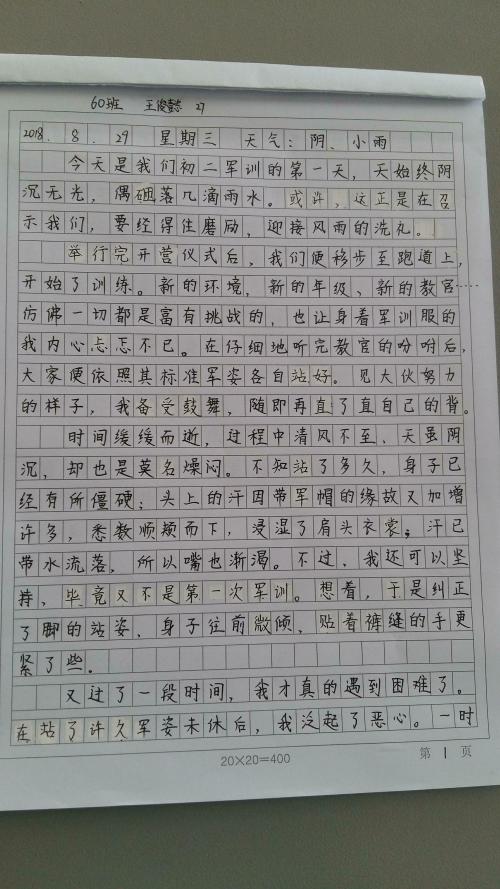 60班 王俊懿 27
2018.8.29 星期三 天气:阴、小雨
今天是我们初二军训的第一天,天始终阴
沉无光,偶砸落几滴雨水。或许,这正是在召
示我们,要经得住磨励,迎接风雨的洗礼。
举行完开营仪式后,我们便移步至跑道上,
开始了训练。新的环境,新的年级、新的教官……
仿佛一切都是富有挑战的,也让身着军训服的
我内心忐忑不已。在仔细地听完教官的吩咐后,
大家便依照其标准军姿各自站好。见大伙努力
的样子,我备受鼓舞,随即再直了直自己的背。
时间缓缓而逝,过程中清风不至、天虽阴
沉,却也是莫名燥闷。不知站了多久,身子已
经有所僵硬;头上的汗因带军帽的缘故又加增
许多,悉数顺颊而下,浸湿了肩头衣裳;汗已
带水流落,所以嘴也渐渴。不过,我还可以坚
持,毕竟又不是第一次军训。想着,于是纠正
了脚的站姿,身子往前微倾,贴着裤缝的手更
紧了些。
又过了一段时间,我才真的遇到困难了。
在站了许久军姿未休后,我泛起了恶心。一时
20×20=400
第 1 页